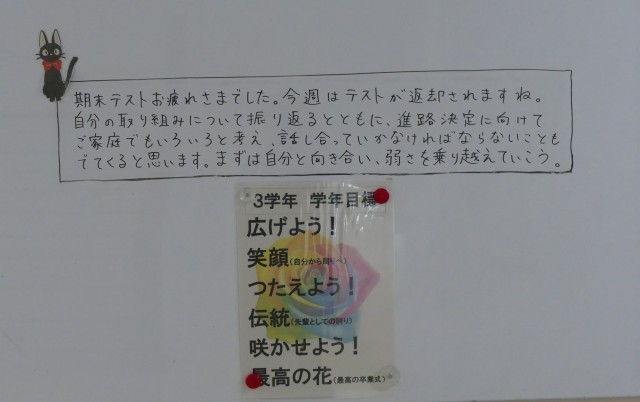 期末テストお疲れさまでした。今週はテストが返却されますね。
自分の取り組みについて振り返るとともに、進路決定に向けて
ご家庭でもいろいろと考え、話し合っていかなければならないことも
でてくると思います。まずは自分と向き合い、弱さを乗り越えていこう。
3学年 学年目標
広げよう!
笑顔(自分から周りへ)
つたえよう!
伝統(先輩としての誇り)
咲かせよう!
最高の花(最高の卒業式)